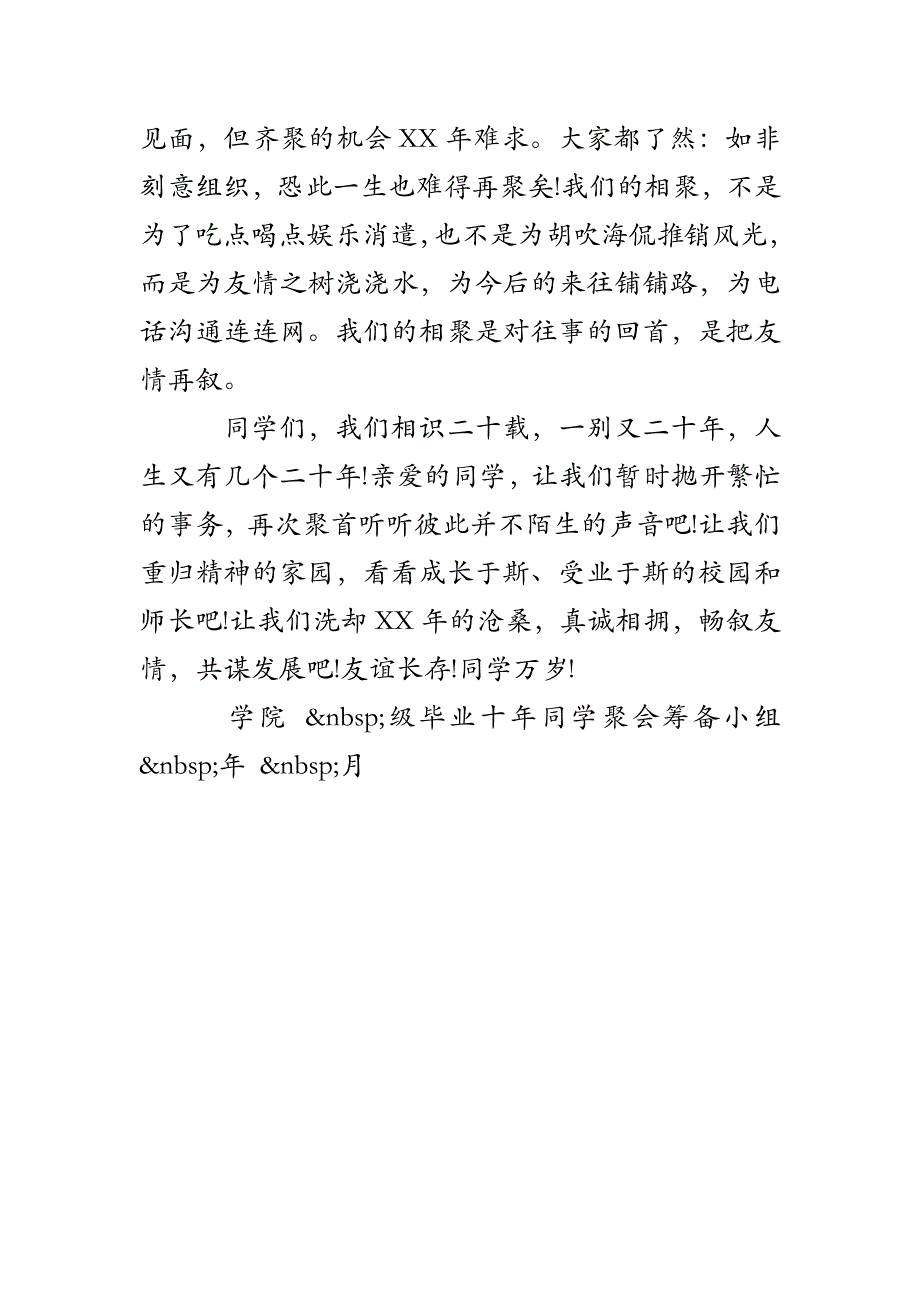 见面，但齐聚的机会 XX 年难求。大家都了然：如非
刻意组织，恐此一生也难得再聚矣!我们的相聚，不是
为了吃点喝点娱乐消遣，也不是为胡吹海侃推销风光，
而是为友情之树浇浇水，为今后的来往铺铺路，为电
话沟通连连网。我们的相聚是对往事的回首，是把友
情再叙。
同学们，我们相识二十载，一别又二十年，人
生又有几个二十年!亲爱的同学，让我们暂时抛开繁忙
的事务，再次聚首听听彼此并不陌生的声音吧!让我们
重归精神的家园，看看成长于斯、受业于斯的校园和
师长吧!让我们洗却 XX 年的沧桑，真诚相拥，畅叙友
情，共谋发展吧!友谊长存!同学万岁!
学院 &nbsp;级毕业十年同学聚会筹备小组
&nbsp;年 &nbsp;月